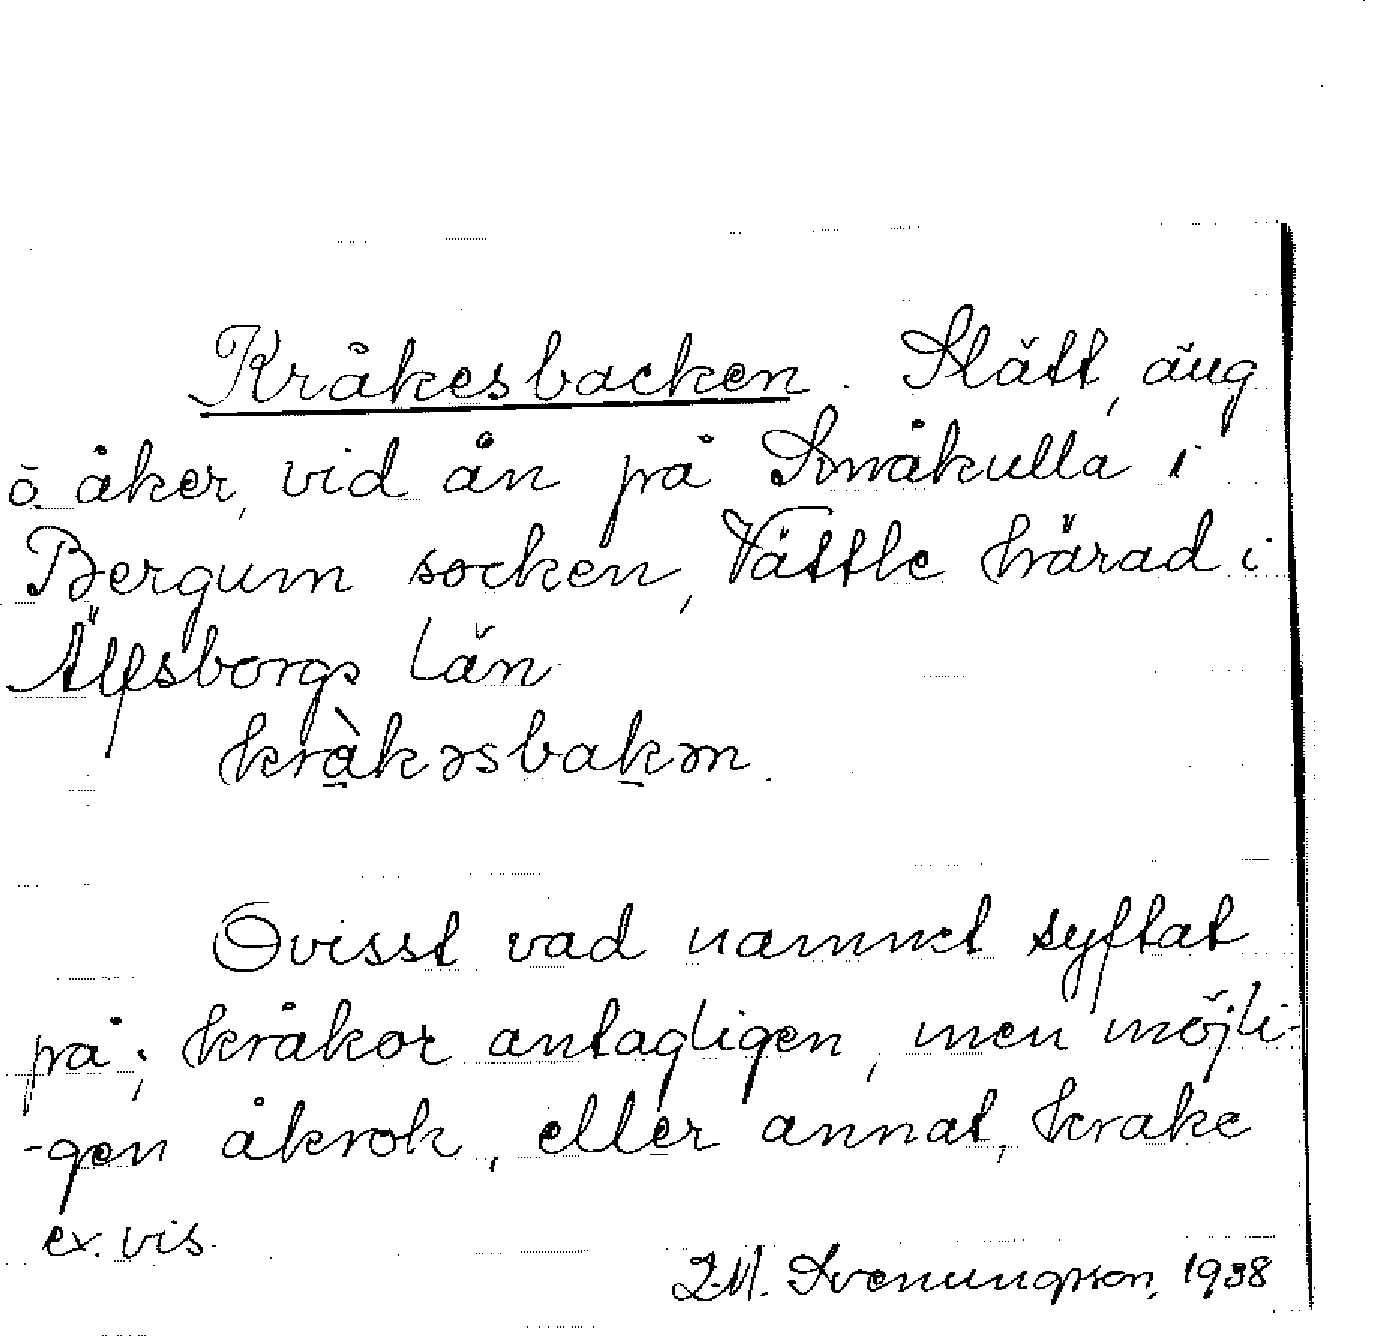 Kråkesbacken. Slätt, äng
ō åker, vid ån på Småkulla i
Bergum socken, Vättle härad i
Älfsborgs län
kràkəsbakən.
Ovisst vad namnet syftat
på; kråkor antagligen, men möjli-
-gen åkrok, eller annat, krake
ex. vis.
J.M. Svenungsson, 1938